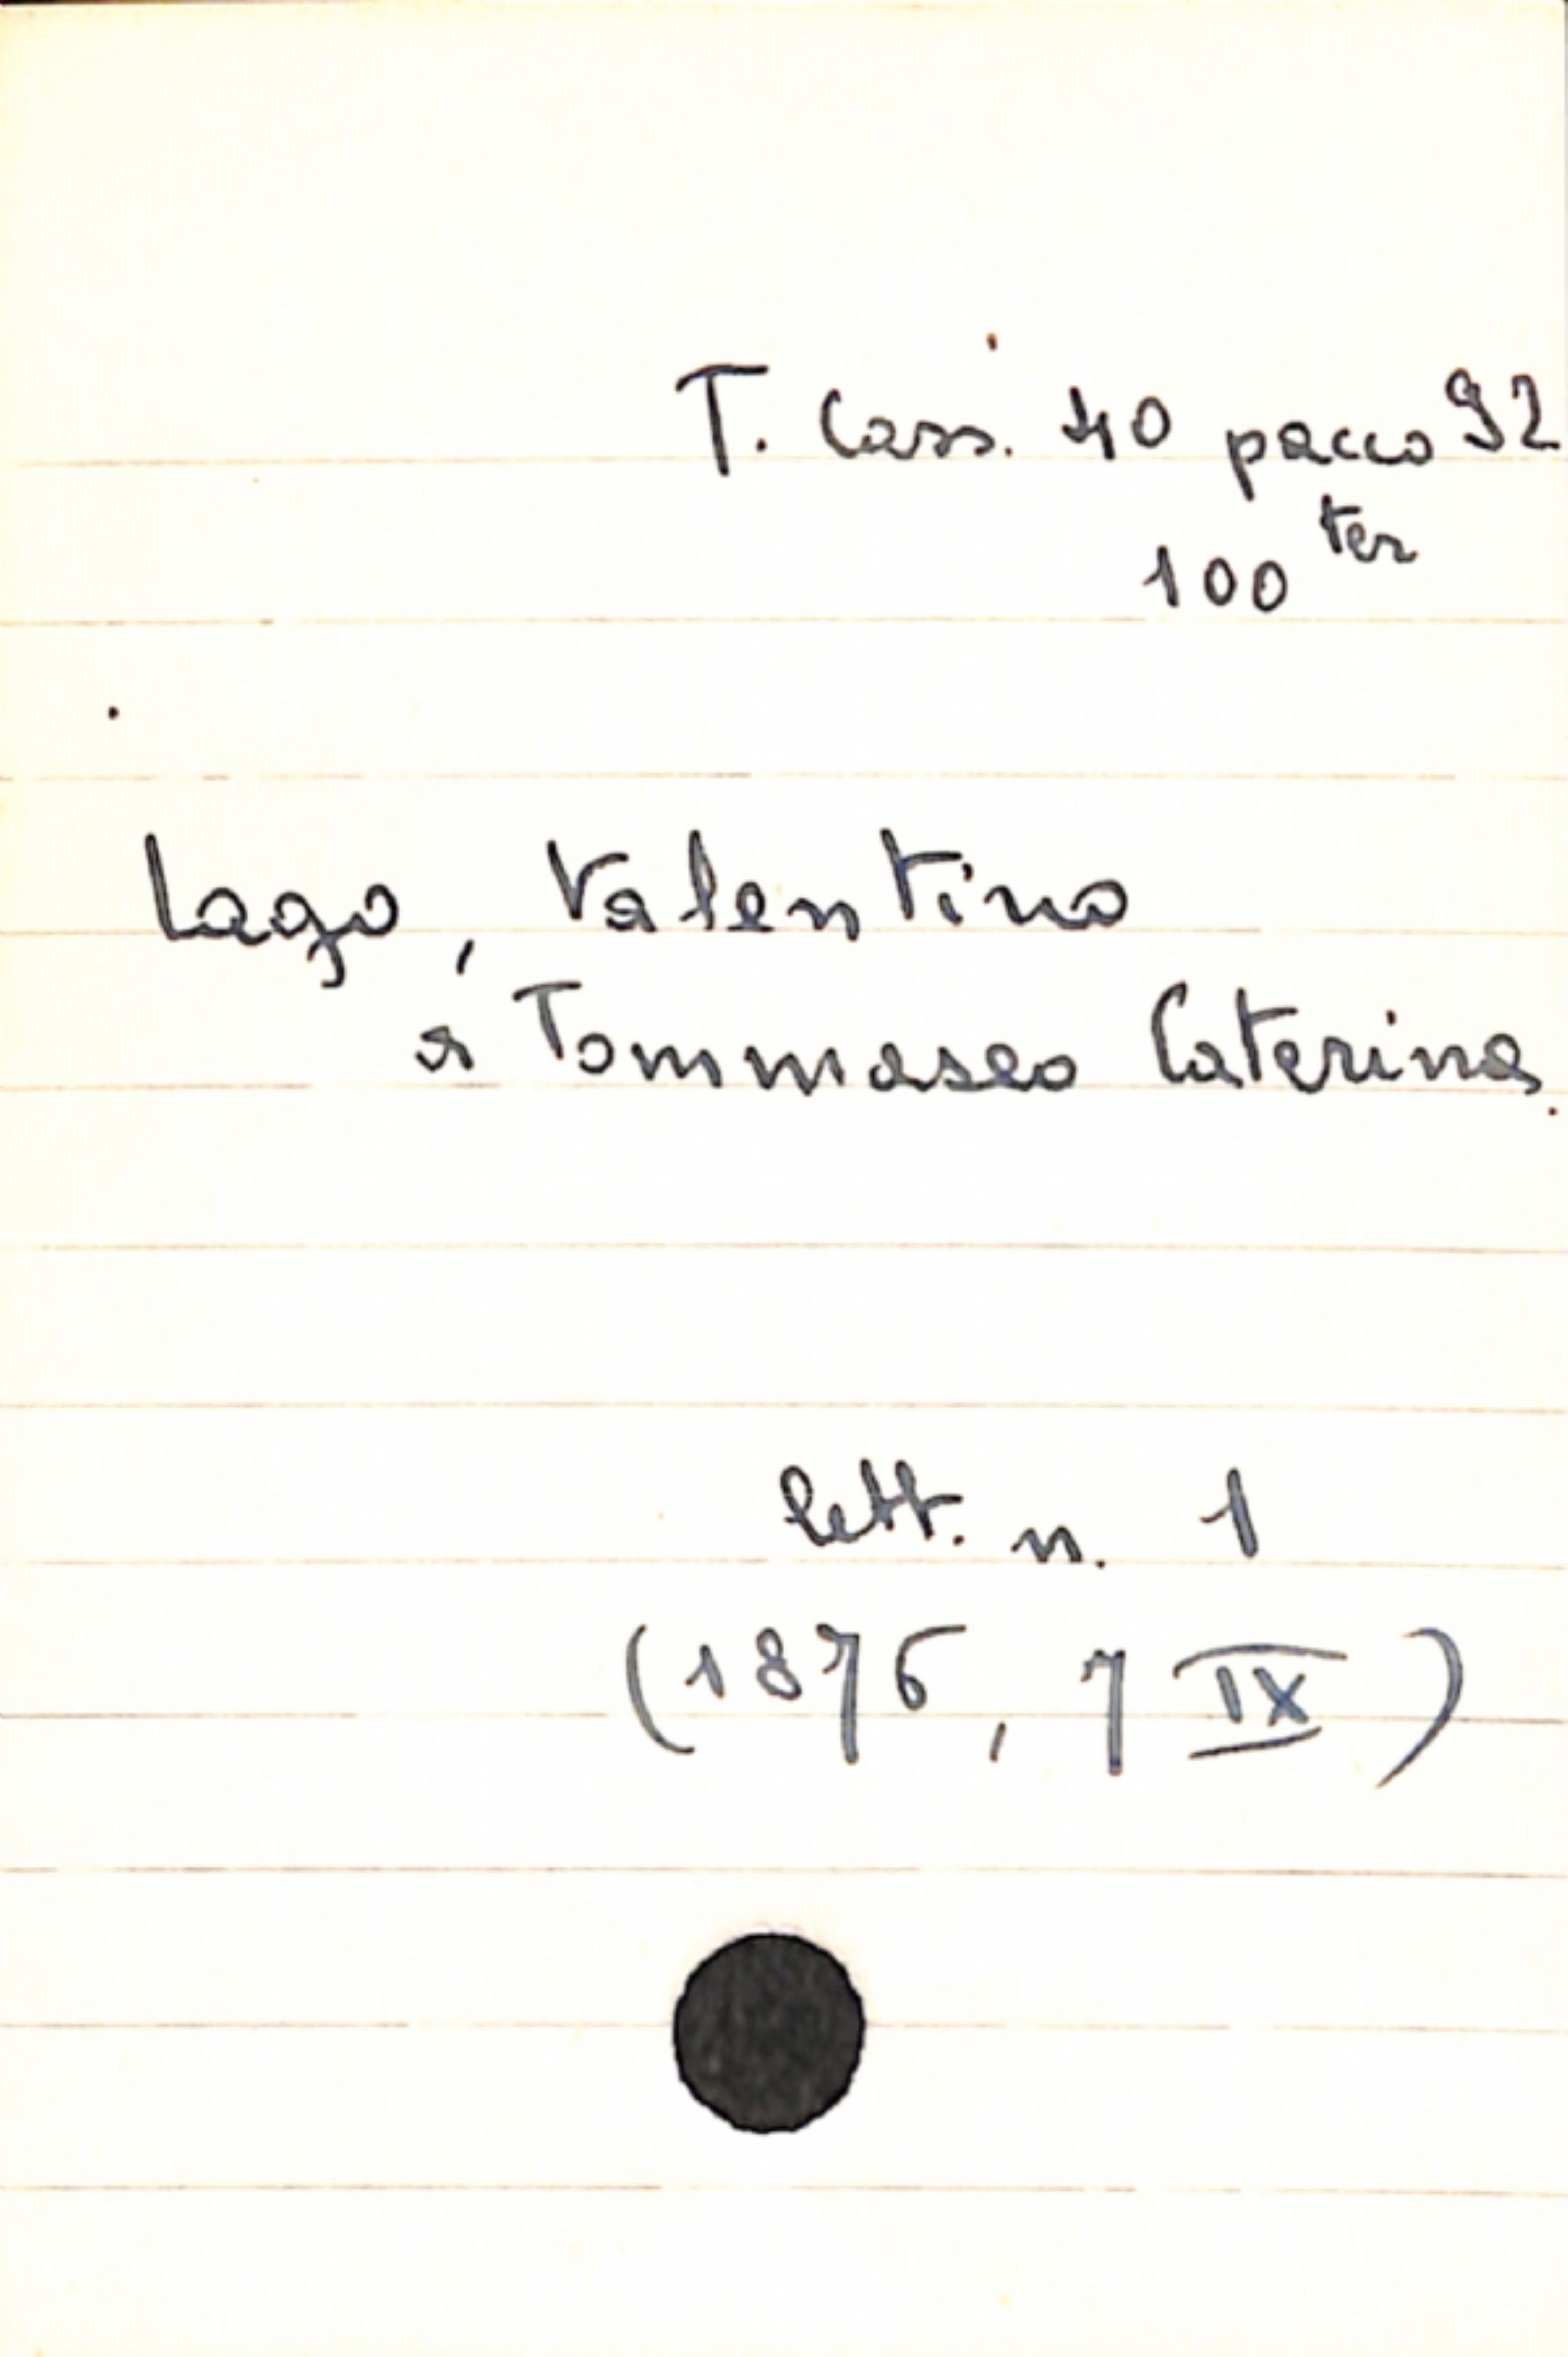 T. Cass. 40 pacco 92
100 ter
Lago, Valentino
a Tommaseo Caterina
lett. n. 1
(1876, 7 IX)